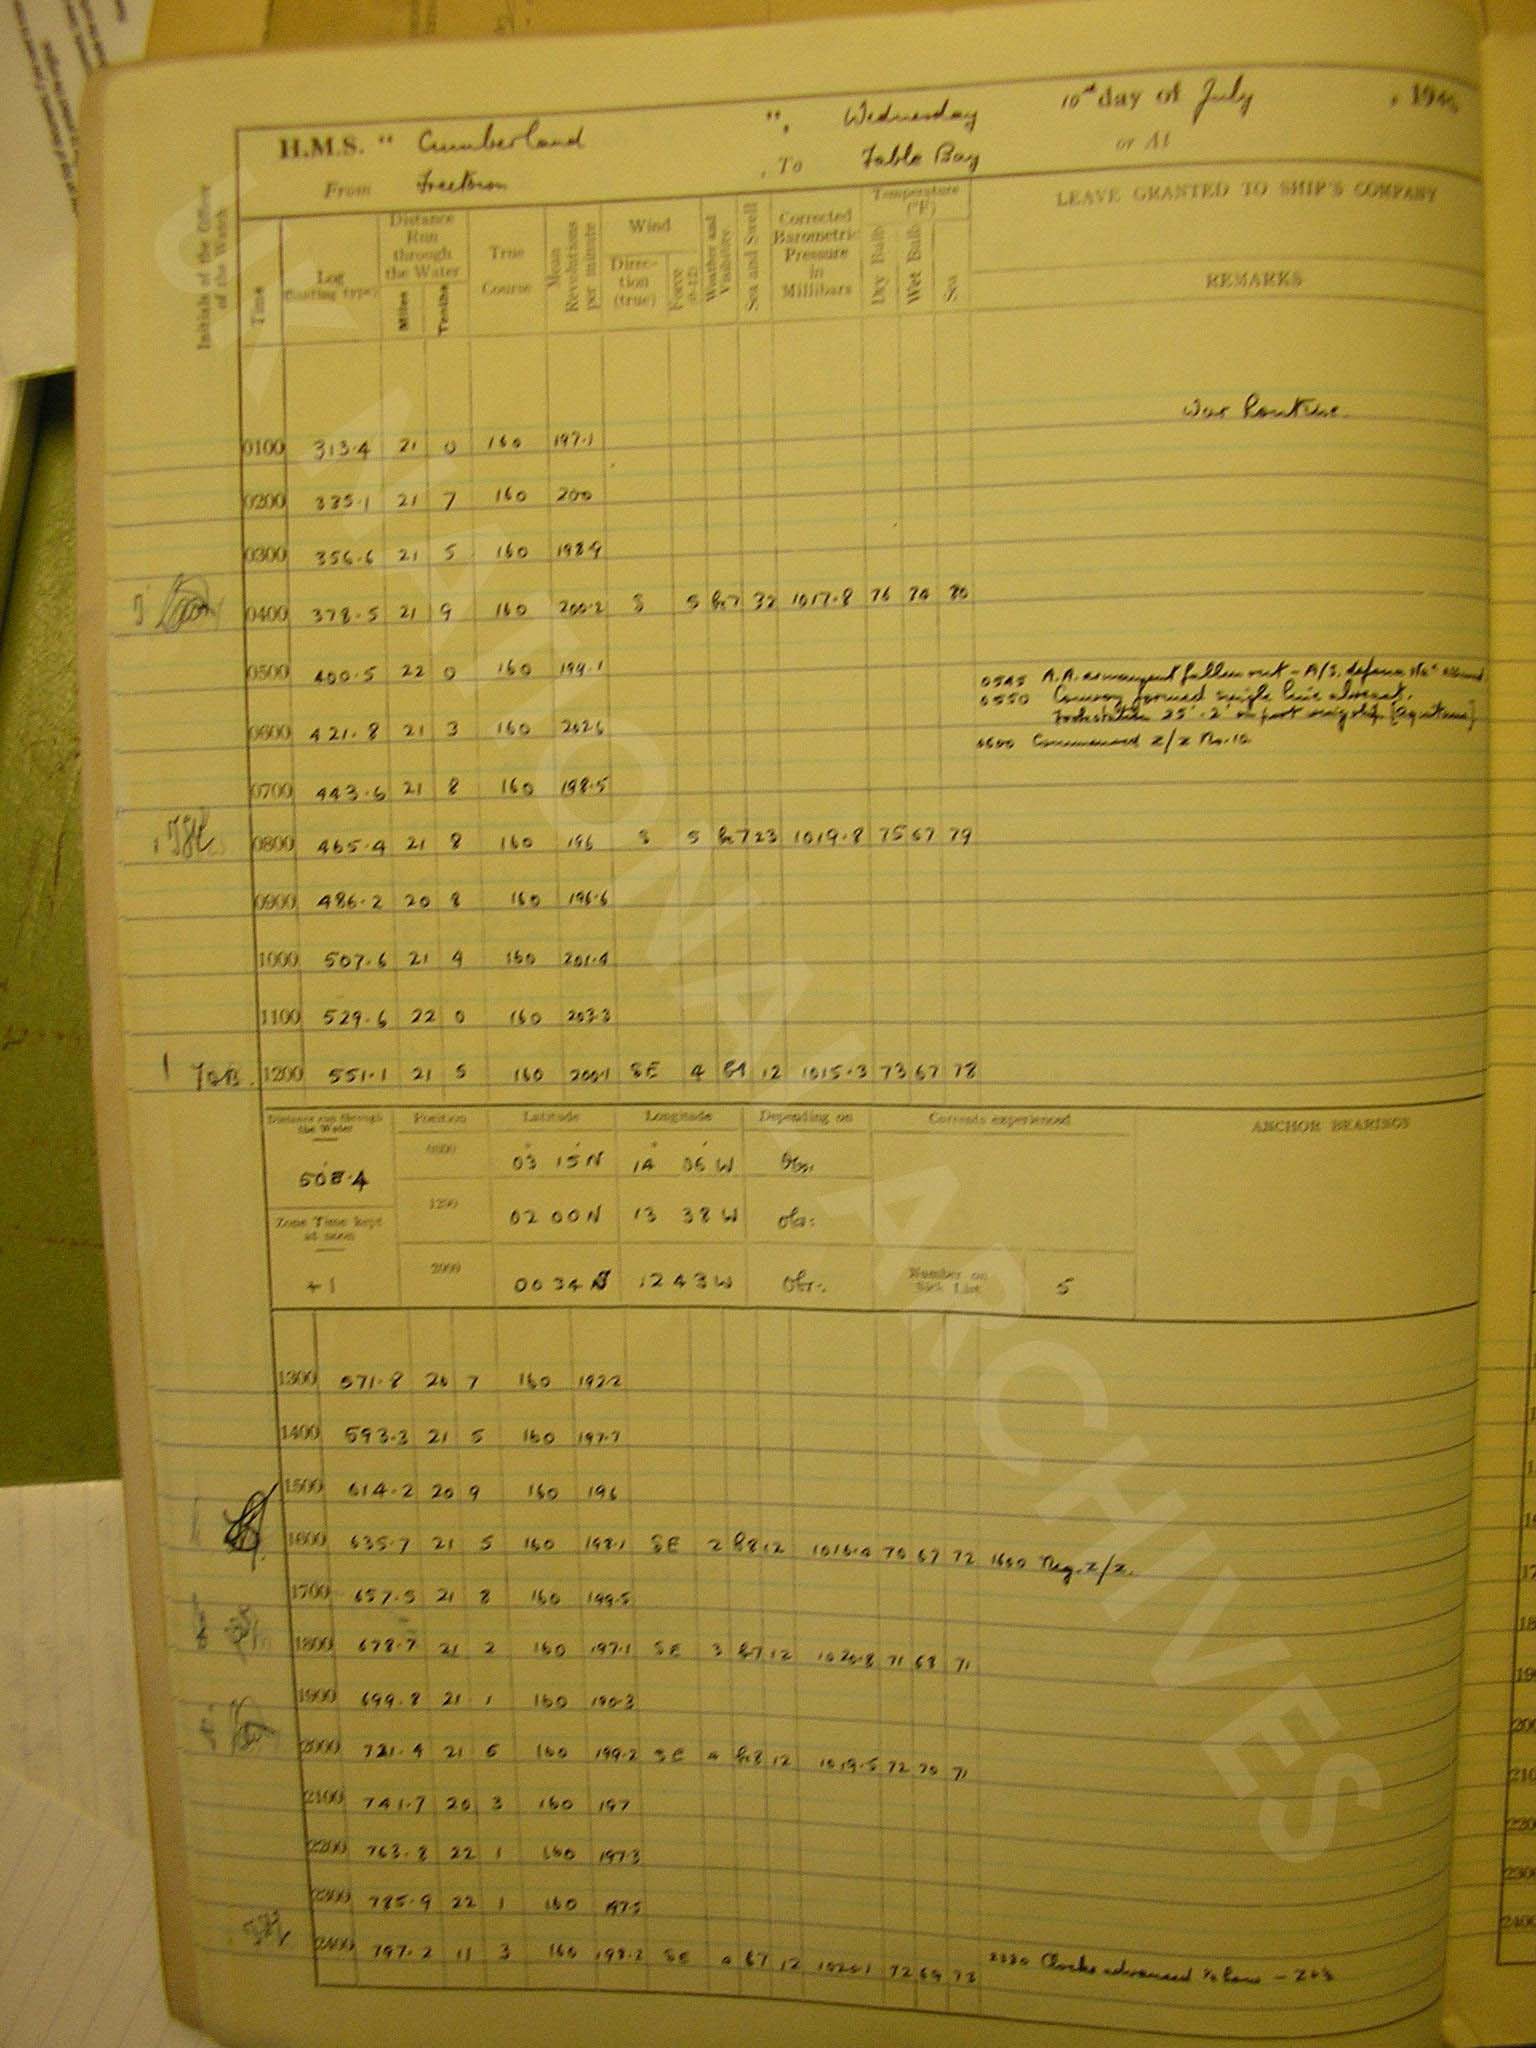 H.M.S. " Cumberland ", Wednesday 10th day of July , 194
From Freetown , To Table Bay or At
Initials of the Officer of the Watch
Time
Log (Stating type)
Distance Run through the Water
Miles Tenths
True Course
Mean Revolutions per minute
Wind
Direction (true)
Force (0-12)
Weather and Visibility
Sea and Swell
Corrected Barometric Pressure in Millibars
Temperature (°F)
Dry Bulb Wet Bulb Sea
LEAVE GRANTED TO SHIP'S COMPANY
REMARKS
War Routine.
0100 313.4 21 0 160 197.1
0200 335.1 21 7 160 200
0300 356.6 21 5 160 198.9
0400 378.5 21 9 160 200.2 S 5 bc7 32 1017.8 76 70 80
0500 400.5 22 0 160 199.1
0545 A.A. armament fallen out - A/S. defence
0550 Convoy formed single line abreast.
25' - 2' on port [Aquitania]
0600 421.8 21 3 160 202.6
0600 Commenced Z/Z No. 10
0700 443.6 21 8 160 198.5
0800 465.4 21 8 160 196 S 5 bc7 23 1019.8 75 67 79
0900 486.2 20 8 160 196.6
1000 507.6 21 4 160 201.4
1100 529.6 22 0 160 203.3
1200 551.1 21 5 160 200.1 SE 4 12 1015.3 73 67 78
Distance run through the Water
508.4
Zone Time kept at noon
+1
Position Latitude Longitude Depending on Currents experienced ANCHOR BEARINGS
0800 03 15 N 14 06 W Obs.
1200 02 00 N 13 38 W Obs.
2000 00 34 S 12 43 W Obs. Number on Sick List 5
1300 571.8 20 7 160 192.2
1400 593.3 21 5 160 197.7
1500 614.2 20 9 160 196
1600 635.7 21 5 160 198.1 SE 2 bc8 12 1016.0 70 67 72 1600 Neg. Z/Z.
1700 657.5 21 8 160 199.5
1800 678.7 21 2 160 197.1 SE 3 bc7 12 1020.8 71 68 71
1900 699.8 21 1 160 190.3
2000 721.4 21 6 160 199.2 SE 4 bc8 12 1019.5 72 70 71
2100 741.7 20 3 160 197
2200 763.8 22 1 160 197.3
2300 785.9 22 1 160 197.5
2400 797.2 11 3 160 198.2 SE 4 12 1020.1 72 69 72 2330 Clocks advanced ½ hour
NATIONAL ARCHIVES